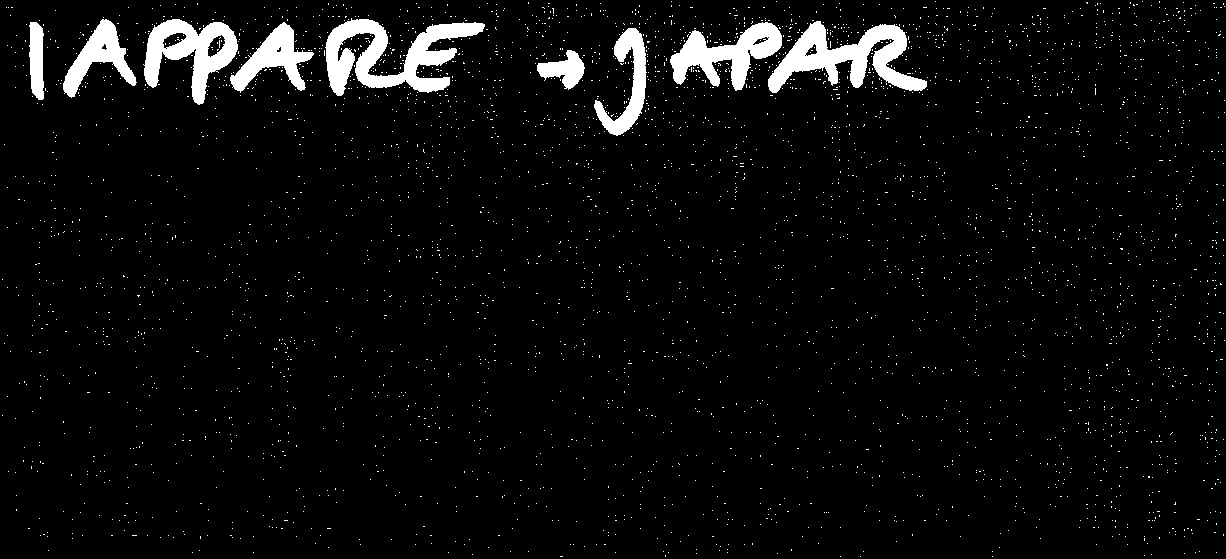 IAPPARE → JAPAR